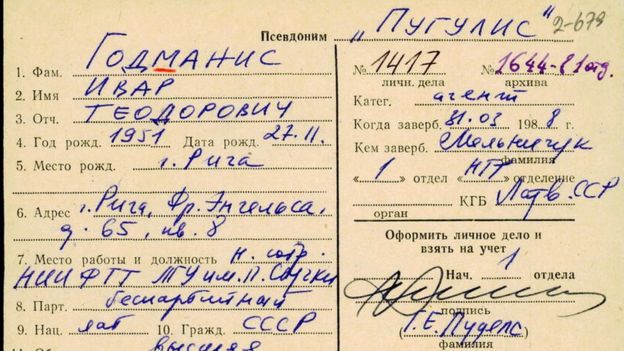 Псевдоним „ПУГУЛИС" 2-679
1. Фам. ГОДМАНИС
2. Имя ИВАР
3. Отч. ТЕОДОРОВИЧ
4. Год рожд. 1951 Дата рожд. 27.11.
5. Место рожд. г. Рига
6. Адрес г. Рига, Фр. Энгельса,
д. 65, кв. 8
7. Место работы и должность н. сотр.
НИИ ФТТ ЛГУ им. П. Стучки
8. Парт. беспартийный
9. Нац. лат 10. Гражд. СССР
высшая
№ 1417 № 1644-81отд.
личн. дела архива
Катег. агент
Когда заверб. 31.03 1988 г.
Кем заверб. Мельничук
фамилия
« 1 » отдел « НТР отделение
КГБ Латв. ССР
орган
Оформить личное дело и
взять на учет
Нач. 1 отдела
подпись
фамилия